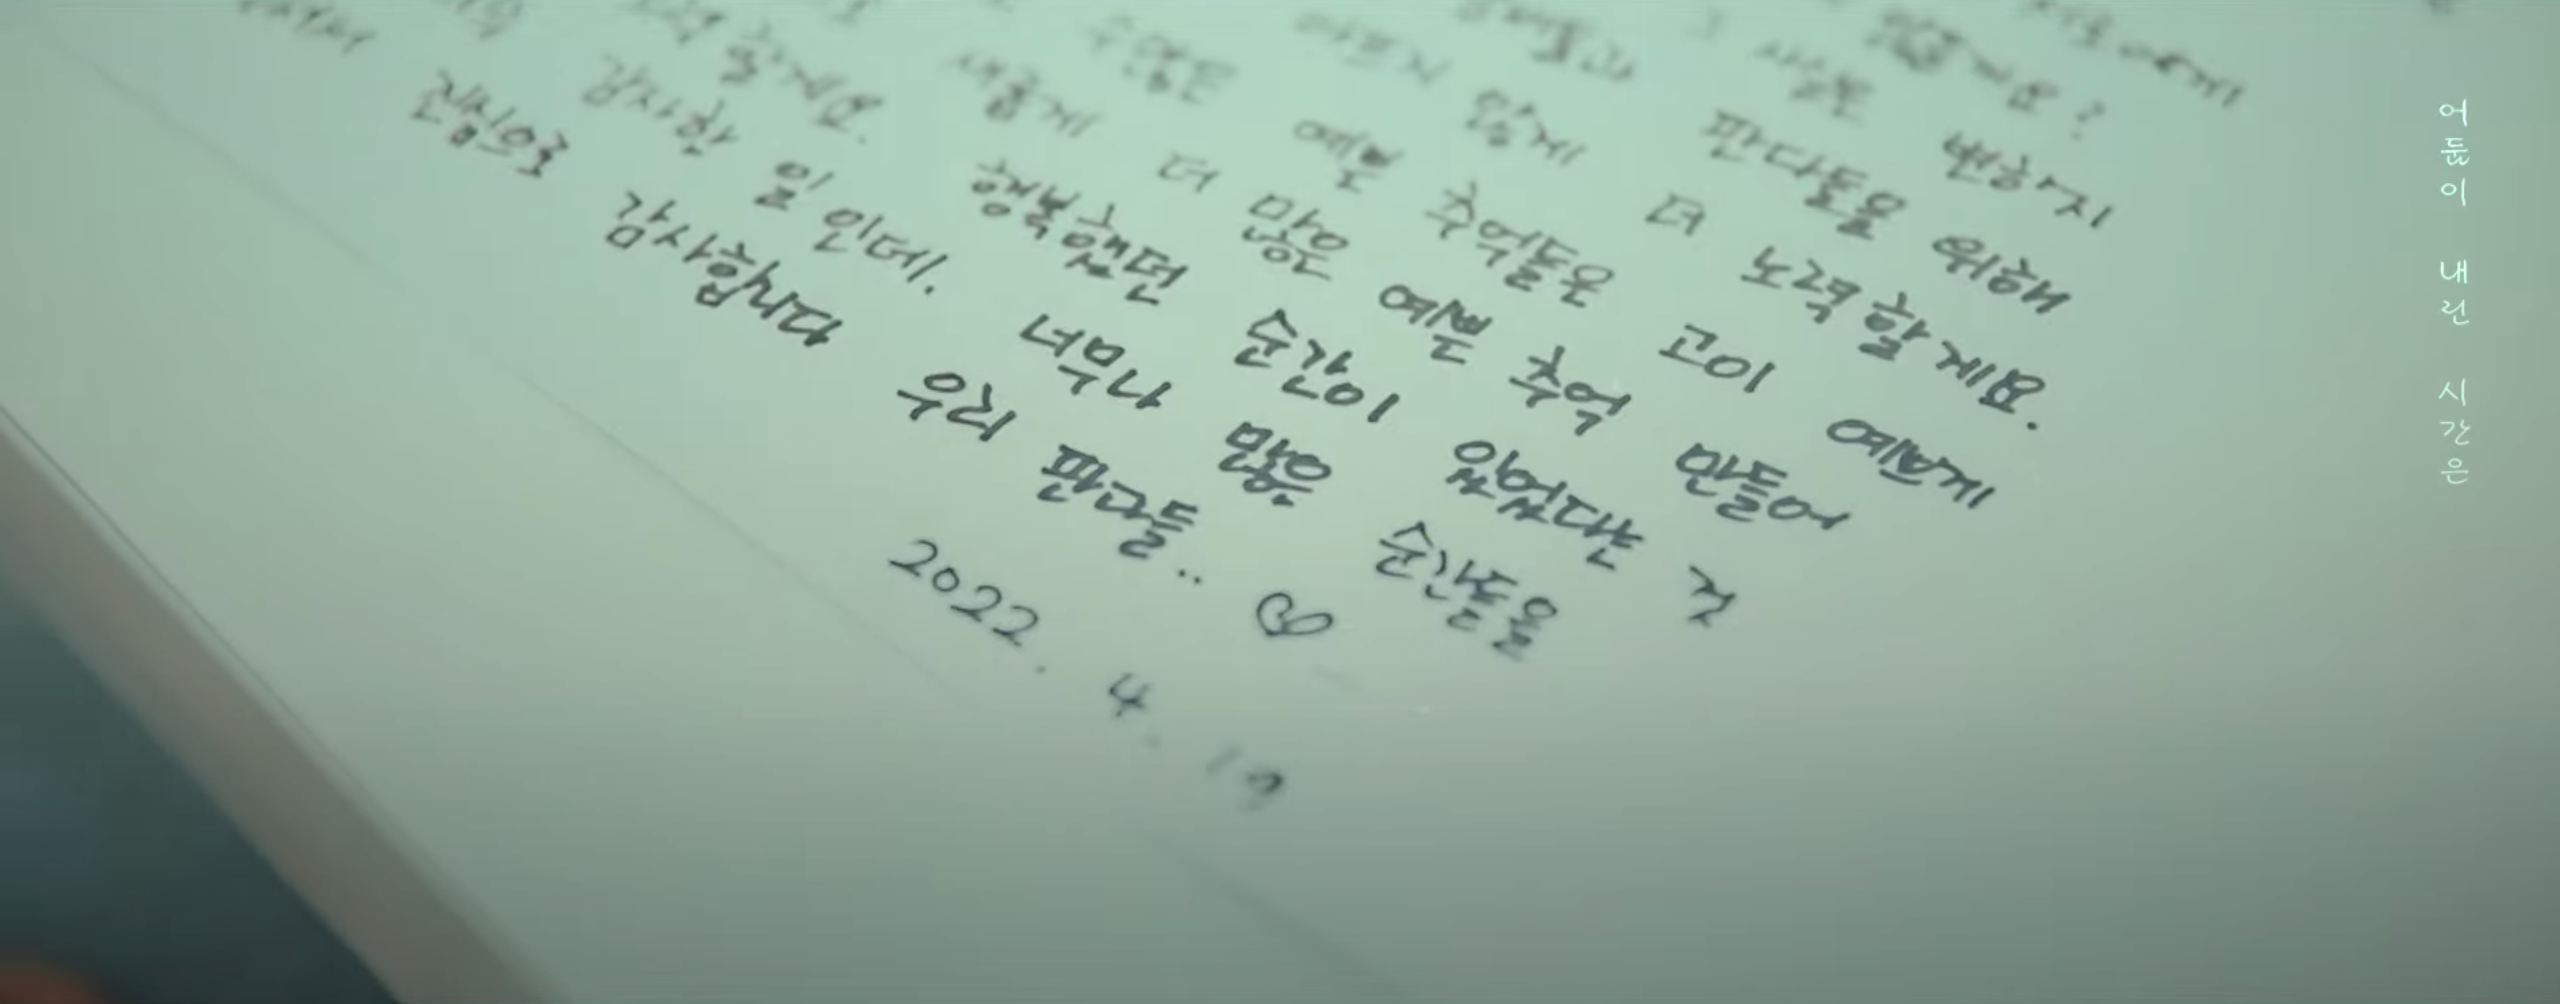 서로에게
그 사실은 변하지
판다들을 위해
아프지 않게 더 노력할게요.
수많은 예쁜 추억들은 고이 예쁘게
새롭게 더 많은 예쁜 추억 만들어
할게요. 행복했던 순간이 있었다는 것
감사한 일 인데. 너무나 많은 순간들을
진심으로 감사합니다 우리 판다들.. ♡
2022. 4. 19
어둠이 내린 시간은